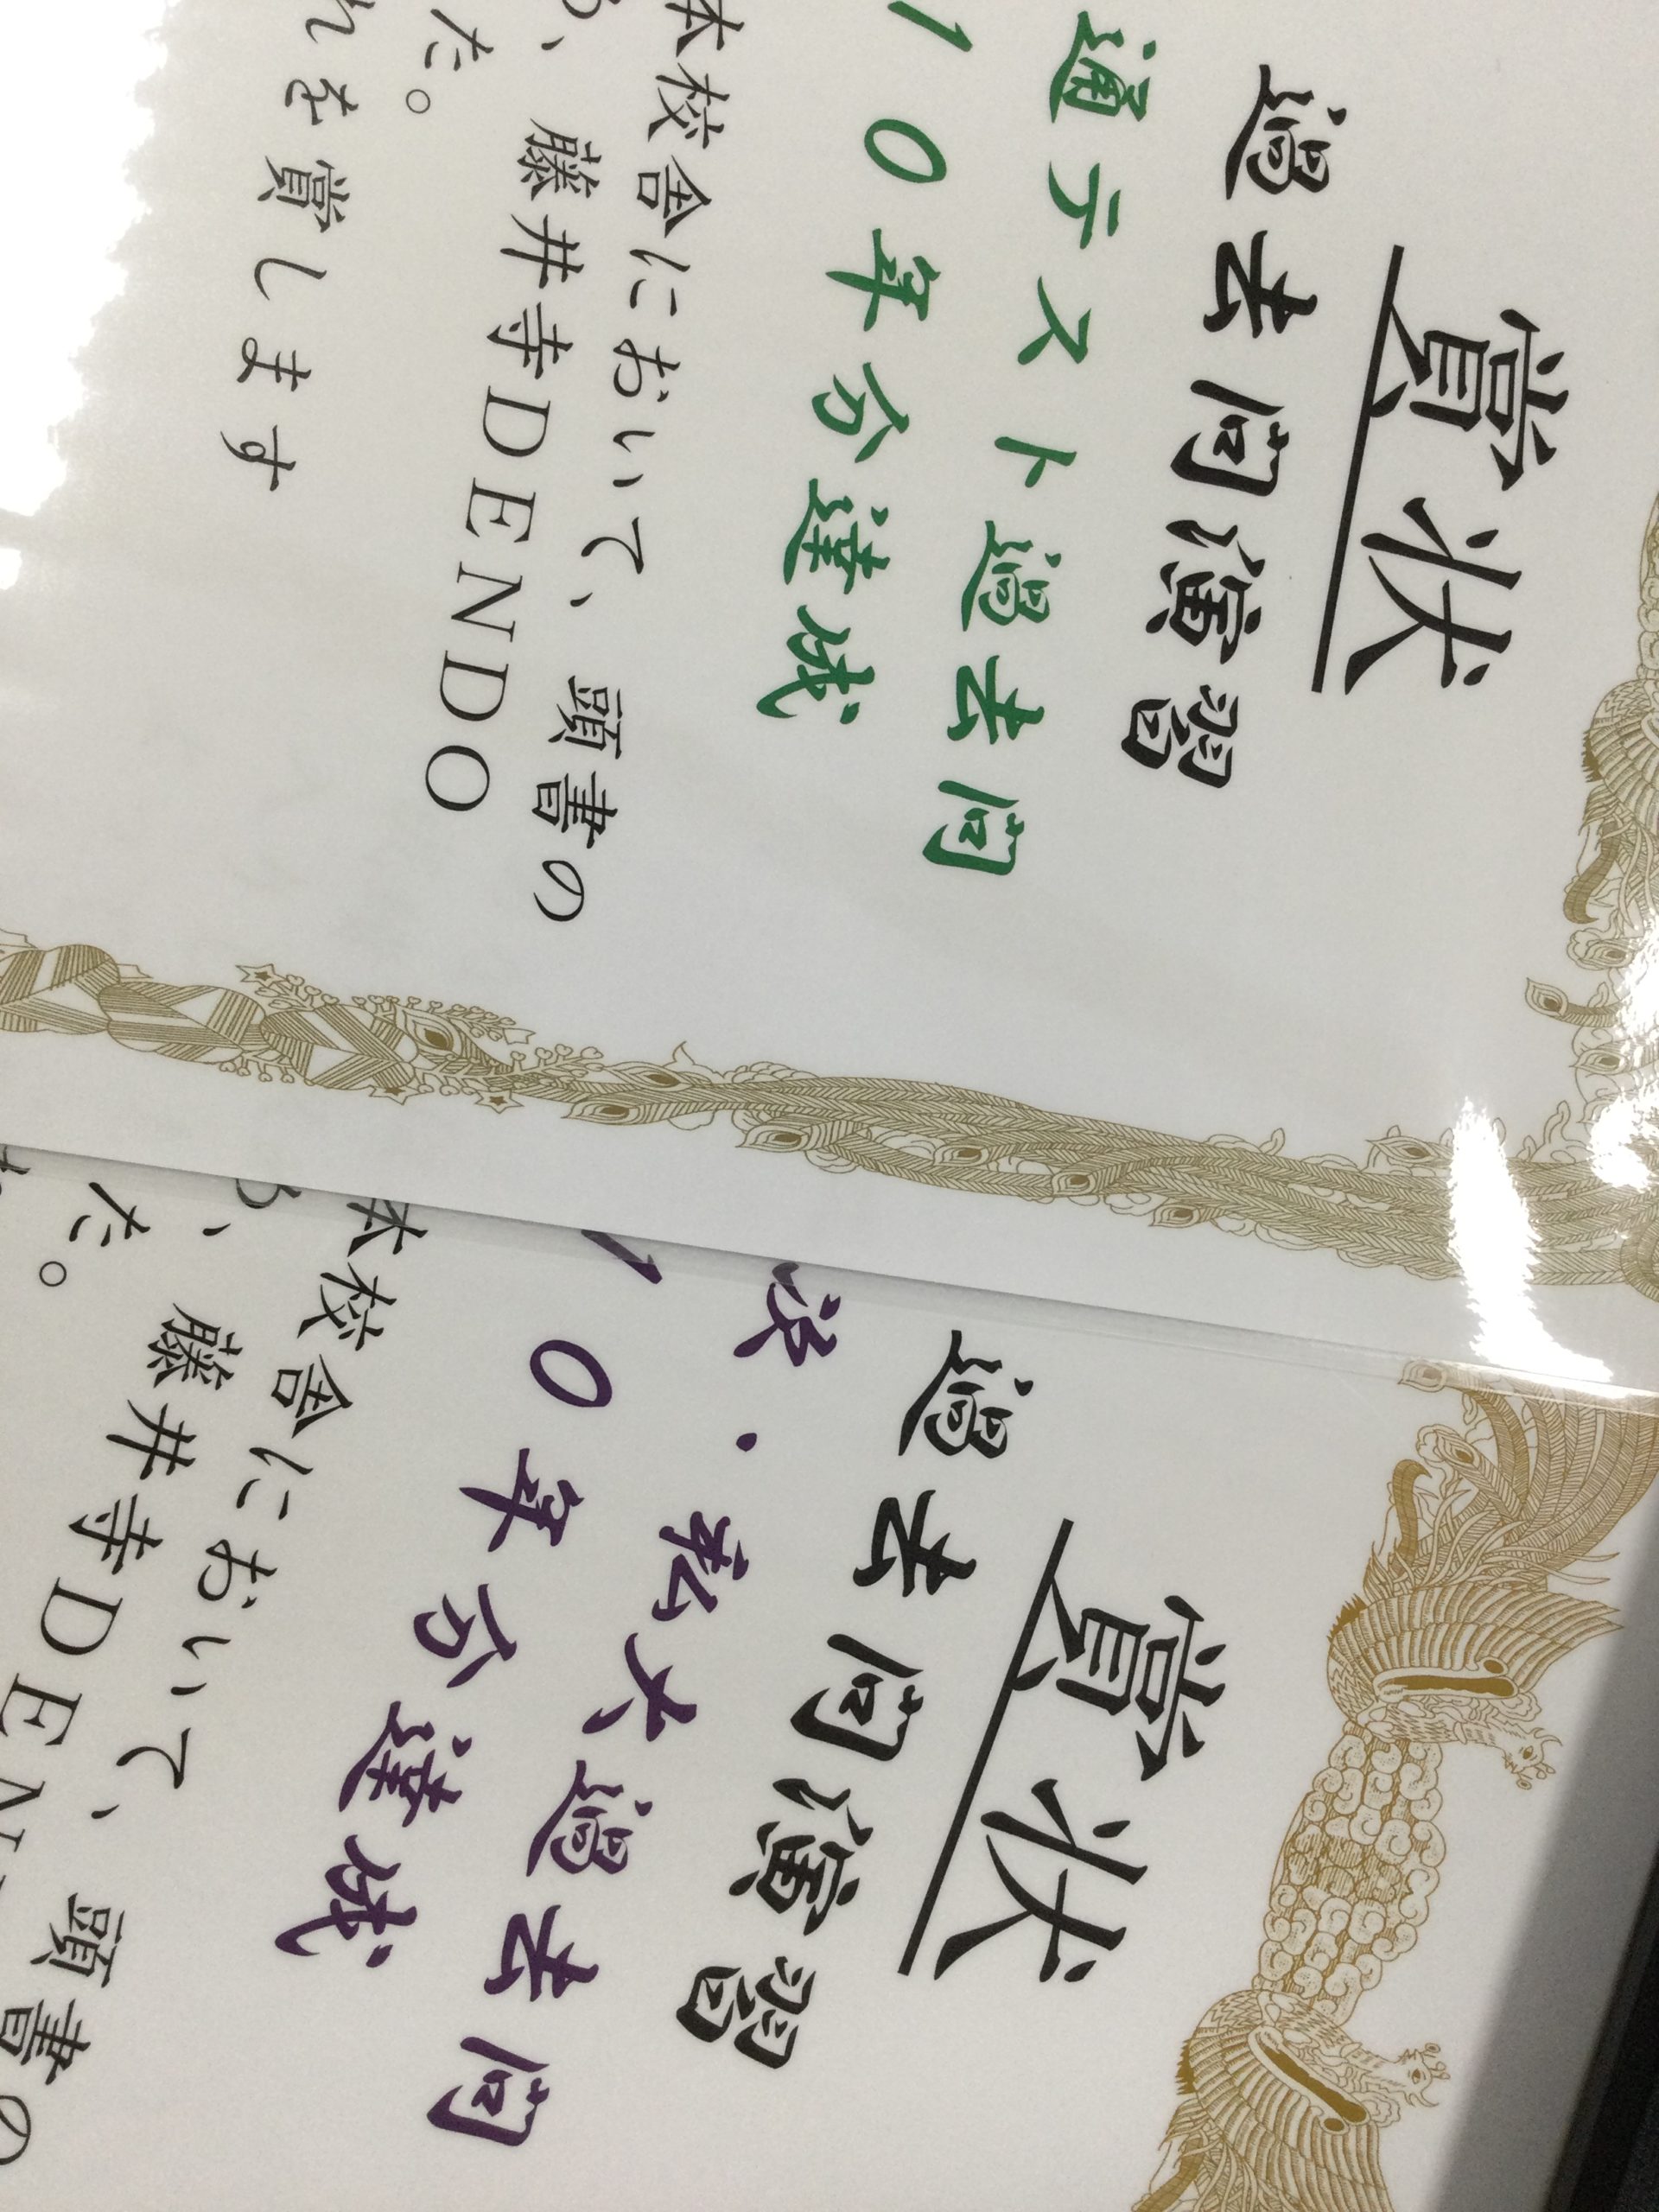 賞状
過去問演習
通テスト過去問
10年分達成
本校舎において、頭書の
、藤井寺DENDO
た。
れを賞します
賞状
過去問演習
次・私大過去問
10年分達成
本校舎において、頭書の
、藤井寺DEN
た。